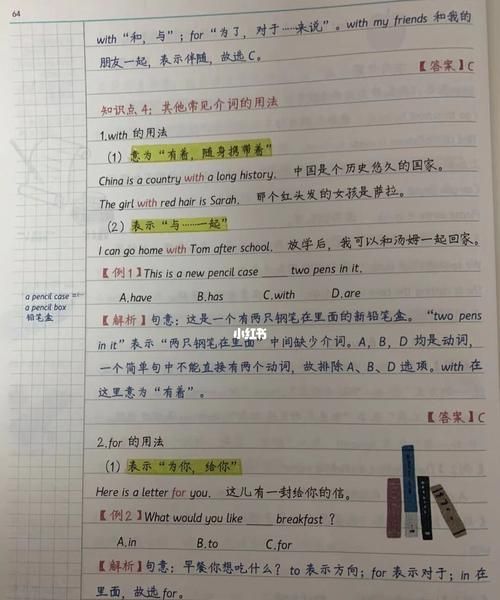 64
with “和,与”；for “为了,对于……来说”。with my friends 和我的
朋友一起,表示伴随,故选C。
【答案】C
知识点4：其他常见介词的用法
1.with 的用法
（1）意为“有着,随身携带着”
China is a country with a long history. 中国是个历史悠久的国家。
The girl with red hair is Sarah. 那个红头发的女孩是萨拉。
（2）表示“与……一起”
I can go home with Tom after school. 放学后,我可以和汤姆一起回家。
【例1】This is a new pencil case ____ two pens in it.
A.have B.has C.with D.are
a pencil case =
a pencil box
铅笔盒
【解析】句意：这是一个有两只钢笔在里面的新铅笔盒。“two pens
in it”表示“两只钢笔在里面”中间缺少介词。A,B,D 均是动词,
一个简单句中不能直接有两个动词,故排除A、B、D 选项。with 在
这里意为“有着”。
小红书
【答案】C
2.for 的用法
（1）表示“为你,给你”
Here is a letter for you. 这儿有一封给你的信。
【例2】What would you like ____ breakfast？
A.in B.to C.for
【解析】句意：早餐你想吃什么？to 表示方向；for 表示对于；in 在
里面,故选for。